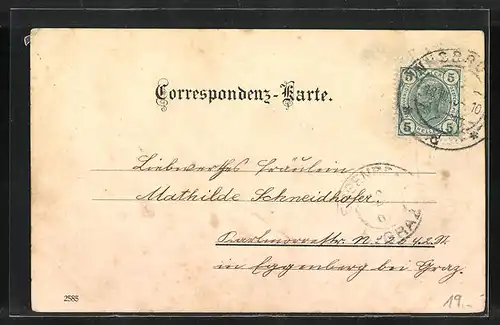 Correspondenz-Karte.
5 5
5 5
Liebwerthes Fräulein
Mathilde Schneidhofer.
N. 20
in Eggenberg bei Graz.
GRAZ
2585
19.-